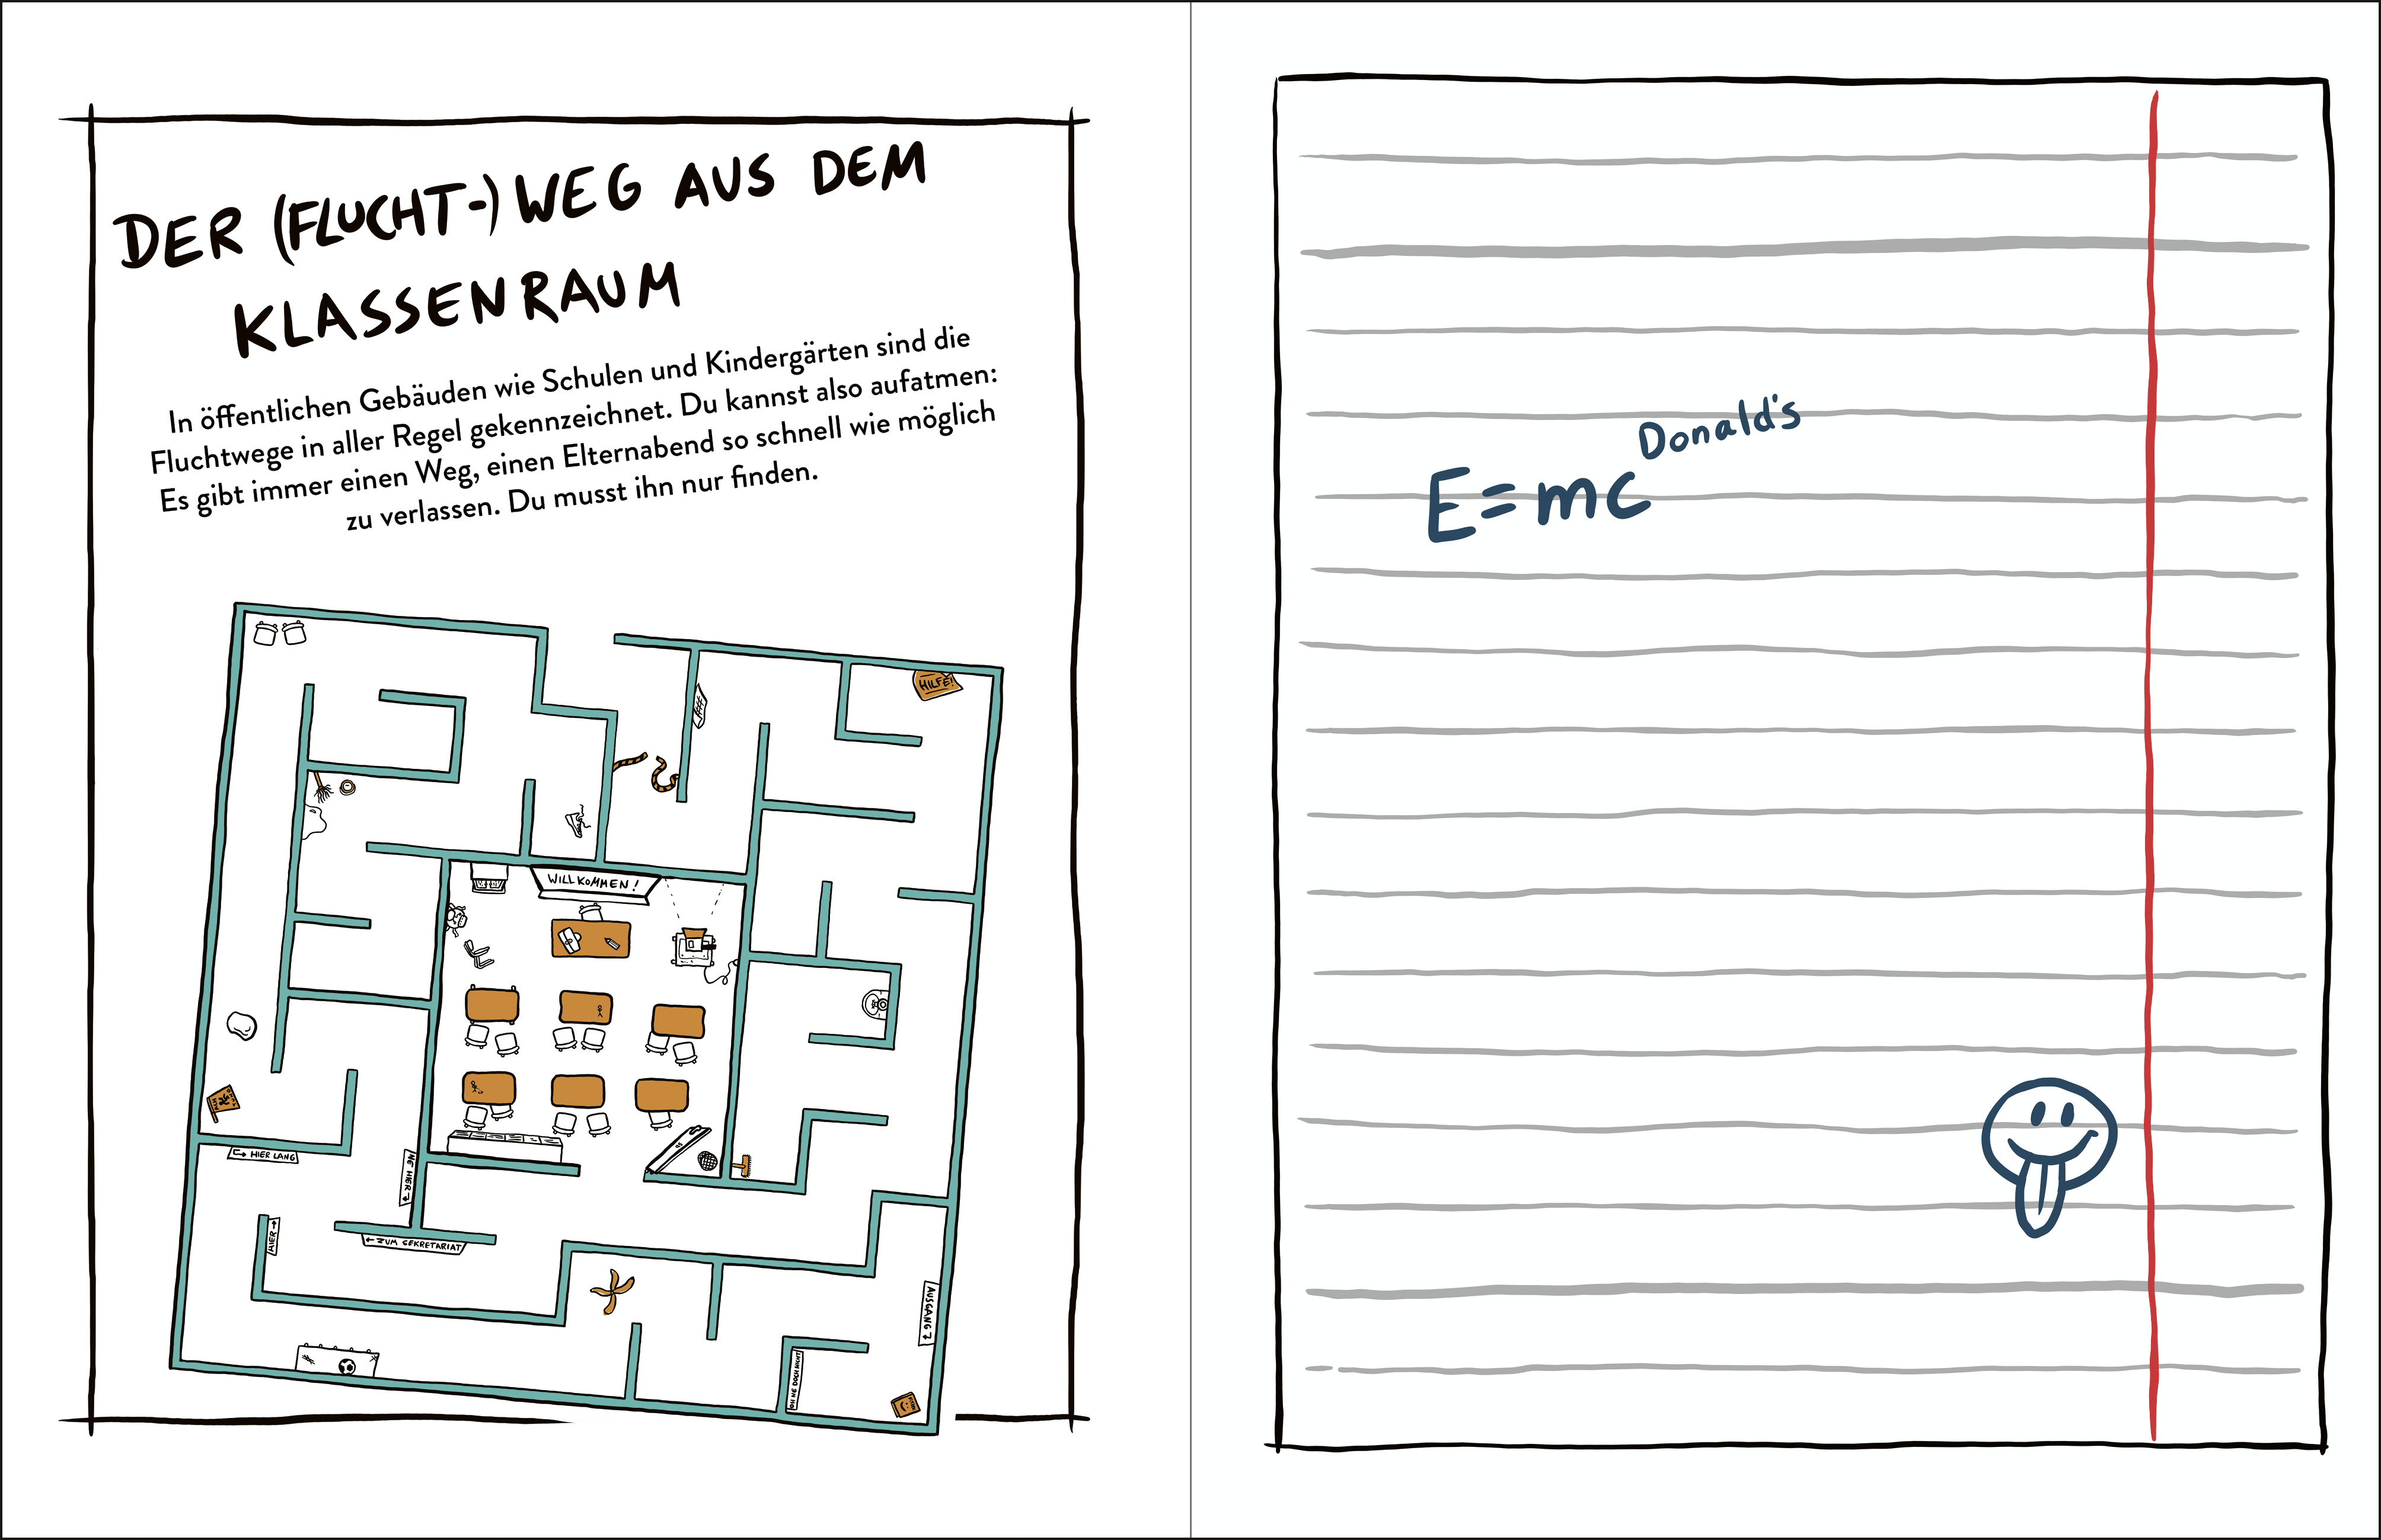 DER (FLUCHT-) WEG AUS DEM
KLASSENRAUM
In öffentlichen Gebäuden wie Schulen und Kindergärten sind die
Fluchtwege in aller Regel gekennzeichnet. Du kannst also aufatmen:
Es gibt immer einen Weg, einen Elternabend so schnell wie möglich
zu verlassen. Du musst ihn nur finden.
HILFE!
WILLKOMMEN!
HIER LANG
NE HIER
HIER
ZUM SEKRETARIAT
AUSGANG
NE DOCH NICHT
E=mc Donald's